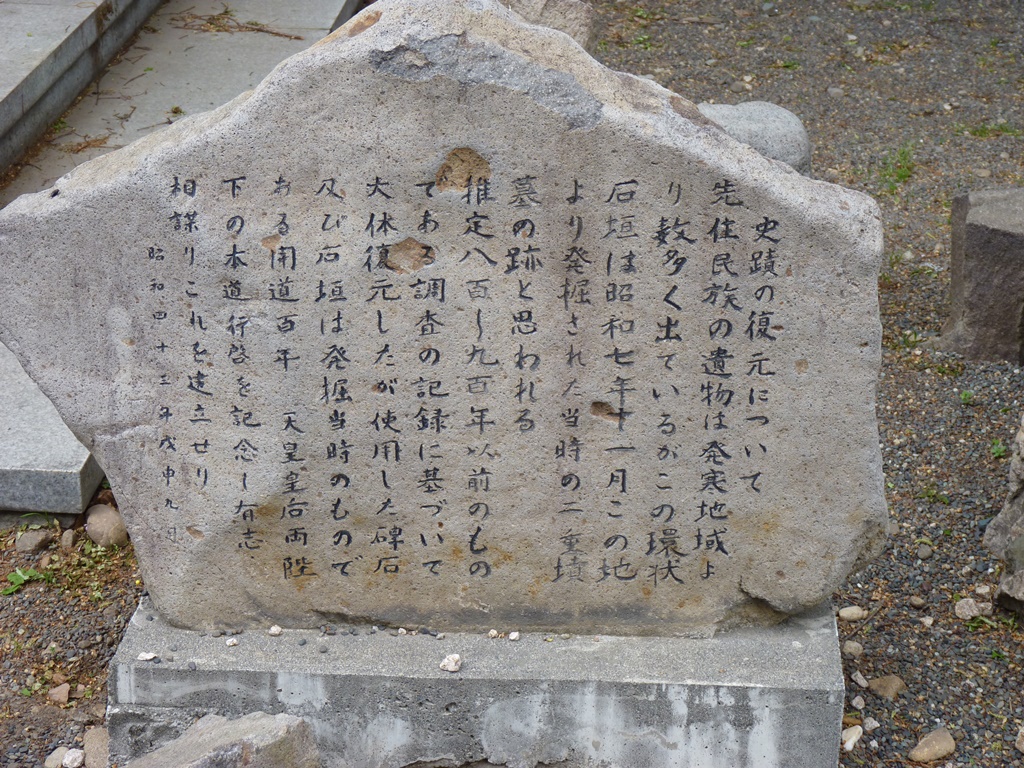 史蹟の復元について
先住民族の遺物は発寒地域よ
り数多く出ているがこの環状
石垣は昭和七年十一月この地
より発掘された当時の二重墳
墓の跡と思われる
推定八百〜九百年以前のもの
である調査の記録に基づいて
大体復元したが使用した碑石
及び石垣は発掘当時のもので
ある開道百年　天皇皇后両陛
下の本道行啓を記念し有志
相謀りこれを建立せり
昭和四十三年戊申九月